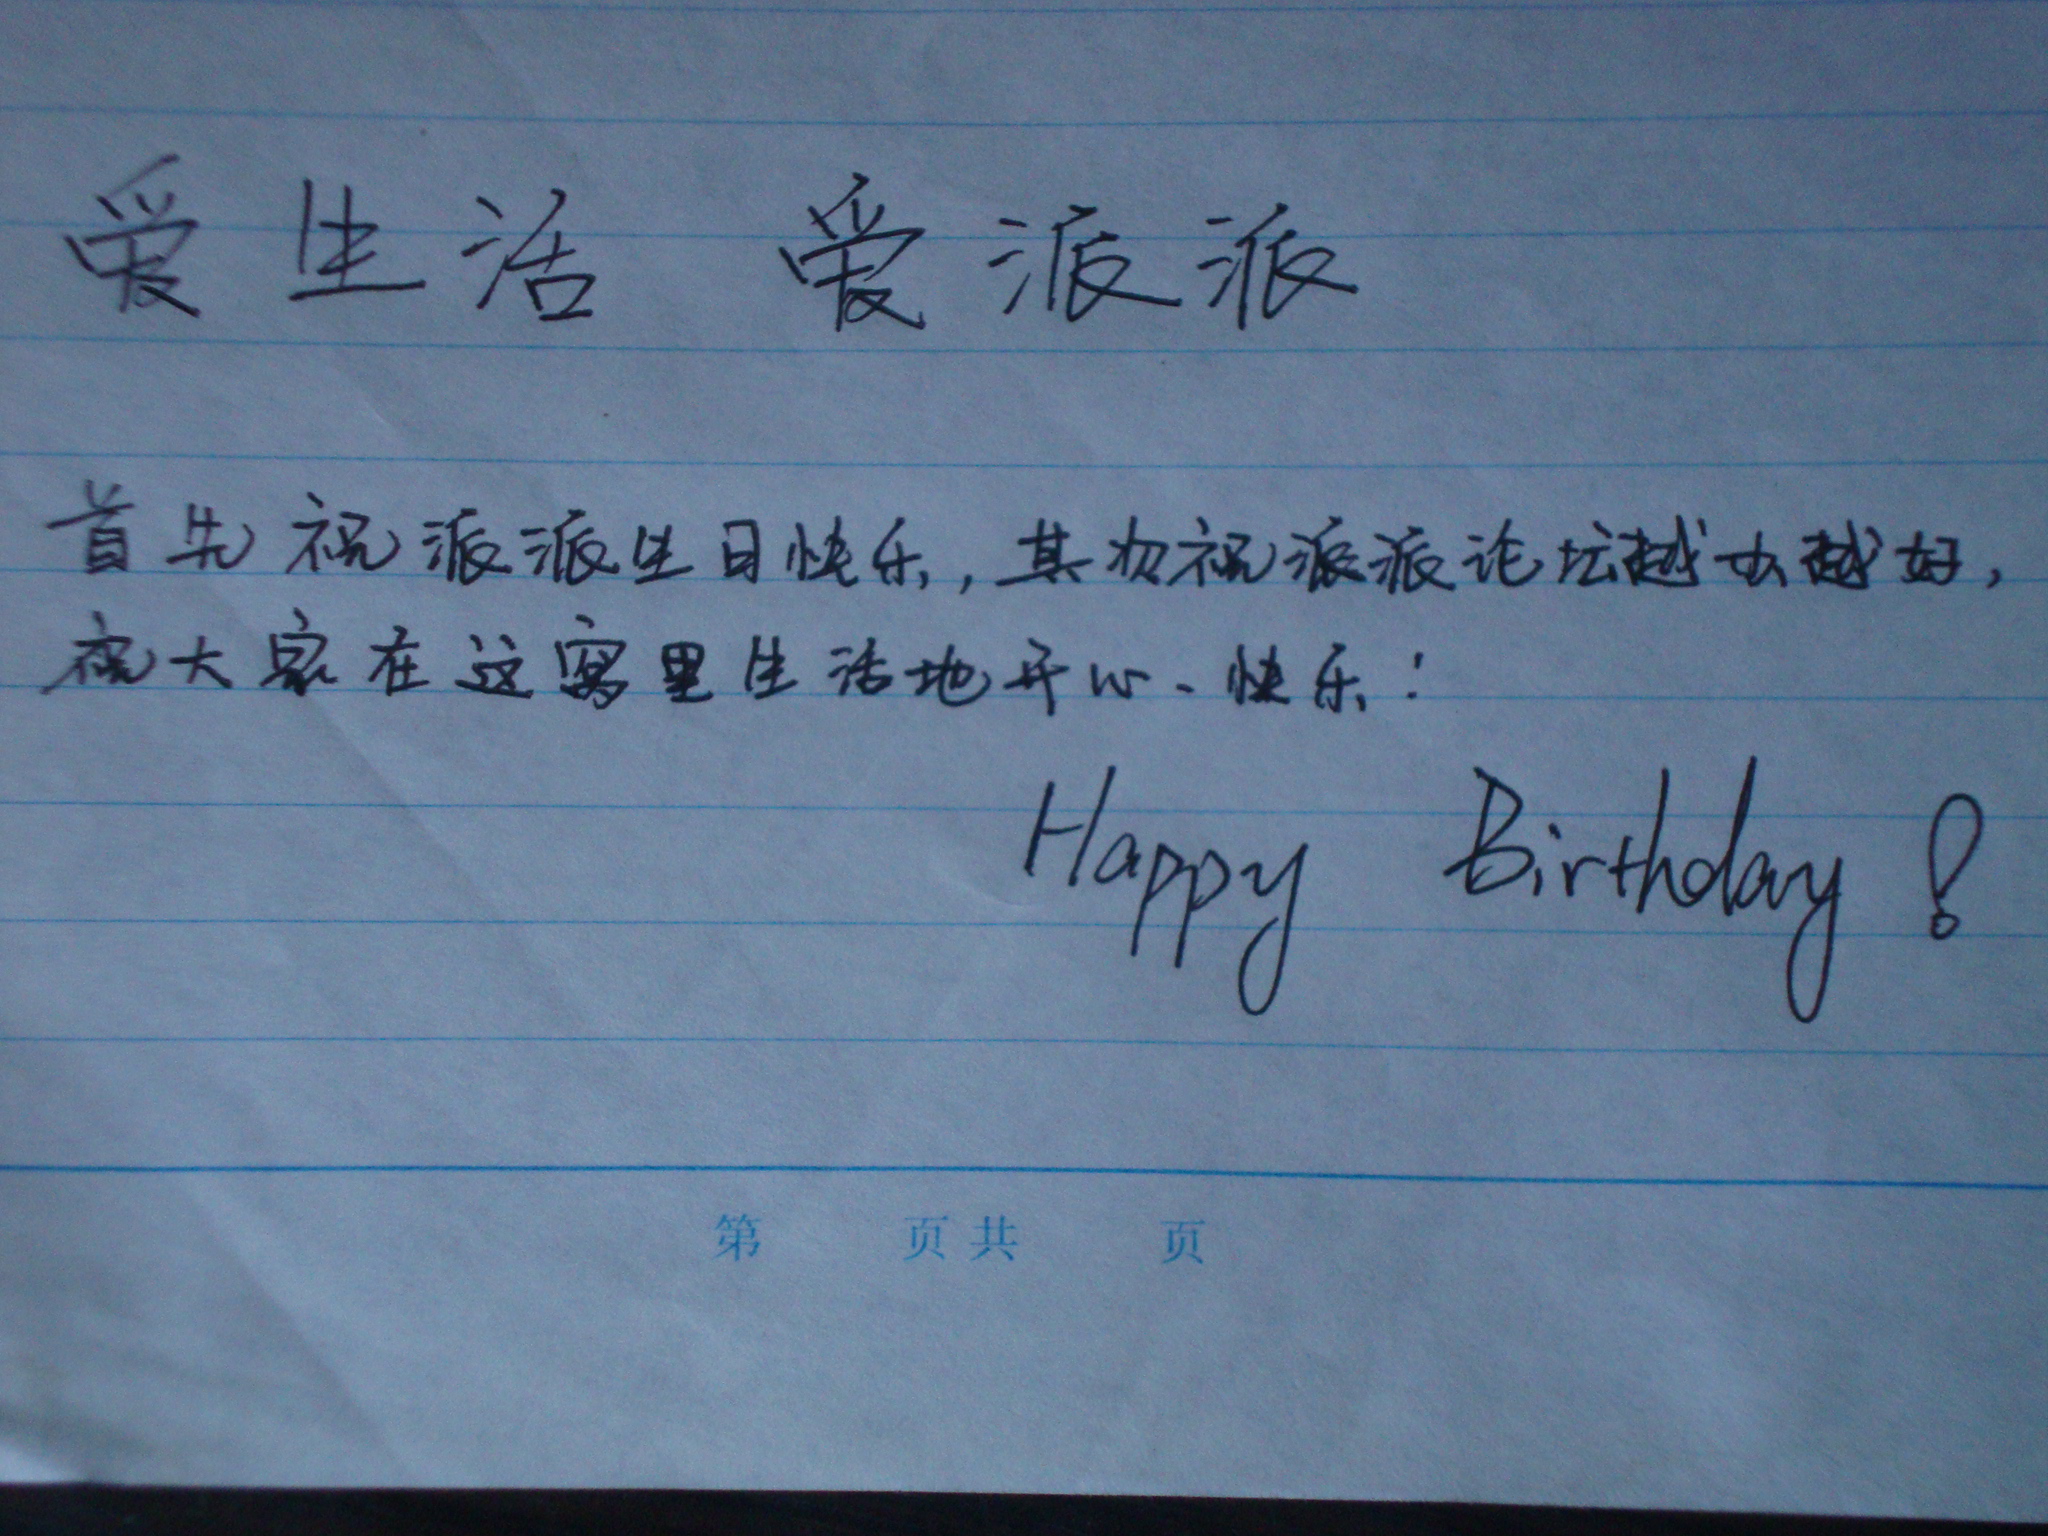 爱生活 爱派派
首先祝派派生日快乐，其次祝派派论坛越办越好，
祝大家在这窝里生活地开心、快乐！
Happy Birthday！
第 页共 页